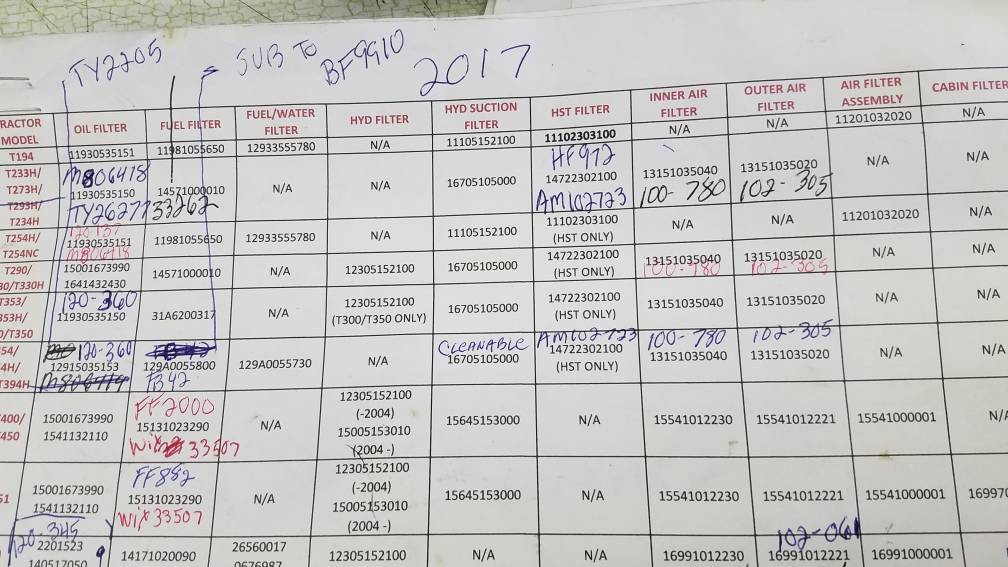 TY2205
SUB TO BF9910
2017
RACTOR MODEL OIL FILTER FUEL FILTER FUEL/WATER FILTER HYD FILTER HYD SUCTION FILTER HST FILTER INNER AIR FILTER OUTER AIR FILTER AIR FILTER ASSEMBLY CABIN FILTER
T194 11930535151 11981055650 12933555780 N/A 11105152100 11102303100 N/A N/A 11201032020 N/A
T233H/ M806418 HF972
T273H/ 11930535150 14571000010 N/A N/A 16705105000 14722302100 13151035040 13151035020 N/A N/A
T293H/ TY26277 33262 AM102723 100-780 102-305
T234H
T254H/ 120-137 11930535151 11981055650 12933555780 N/A 11105152100 11102303100 N/A N/A 11201032020 N/A
T254NC M806418 (HST ONLY)
T290/ 15001673990 14571000010 N/A 12305152100 16705105000 14722302100 13151035040 13151035020 N/A N/A
30/T330H 1641432430 (HST ONLY) 100-780 102-305
T353/ 120-360
353H/ 11930535150 31A6200317 N/A 12305152100 16705105000 14722302100 13151035040 13151035020 N/A N/A
0/T350 (T300/T350 ONLY) (HST ONLY)
54/ 120-360 CLEANABLE AM102723 100-780 102-305
4H/ 12915035153 129A0055800 129A0055730 N/A 16705105000 14722302100 13151035040 13151035020 N/A N/A
T394H FB42 (HST ONLY)
FF2000 12305152100
400/ 15001673990 15131023290 N/A (-2004) 15645153000 N/A 15541012230 15541012221 15541000001 N/
450 1541132110 Wix 33507 15005153010
(2004 -)
FF852 12305152100
51 15001673990 15131023290 N/A (-2004) 15645153000 N/A 15541012230 15541012221 15541000001 169970
1541132110 Wix 33507 15005153010
(2004 -)
120-345 102-061
2201523 14171020090 26560017 12305152100 N/A N/A 16991012230 16991012221 16991000001
140517050 0676987